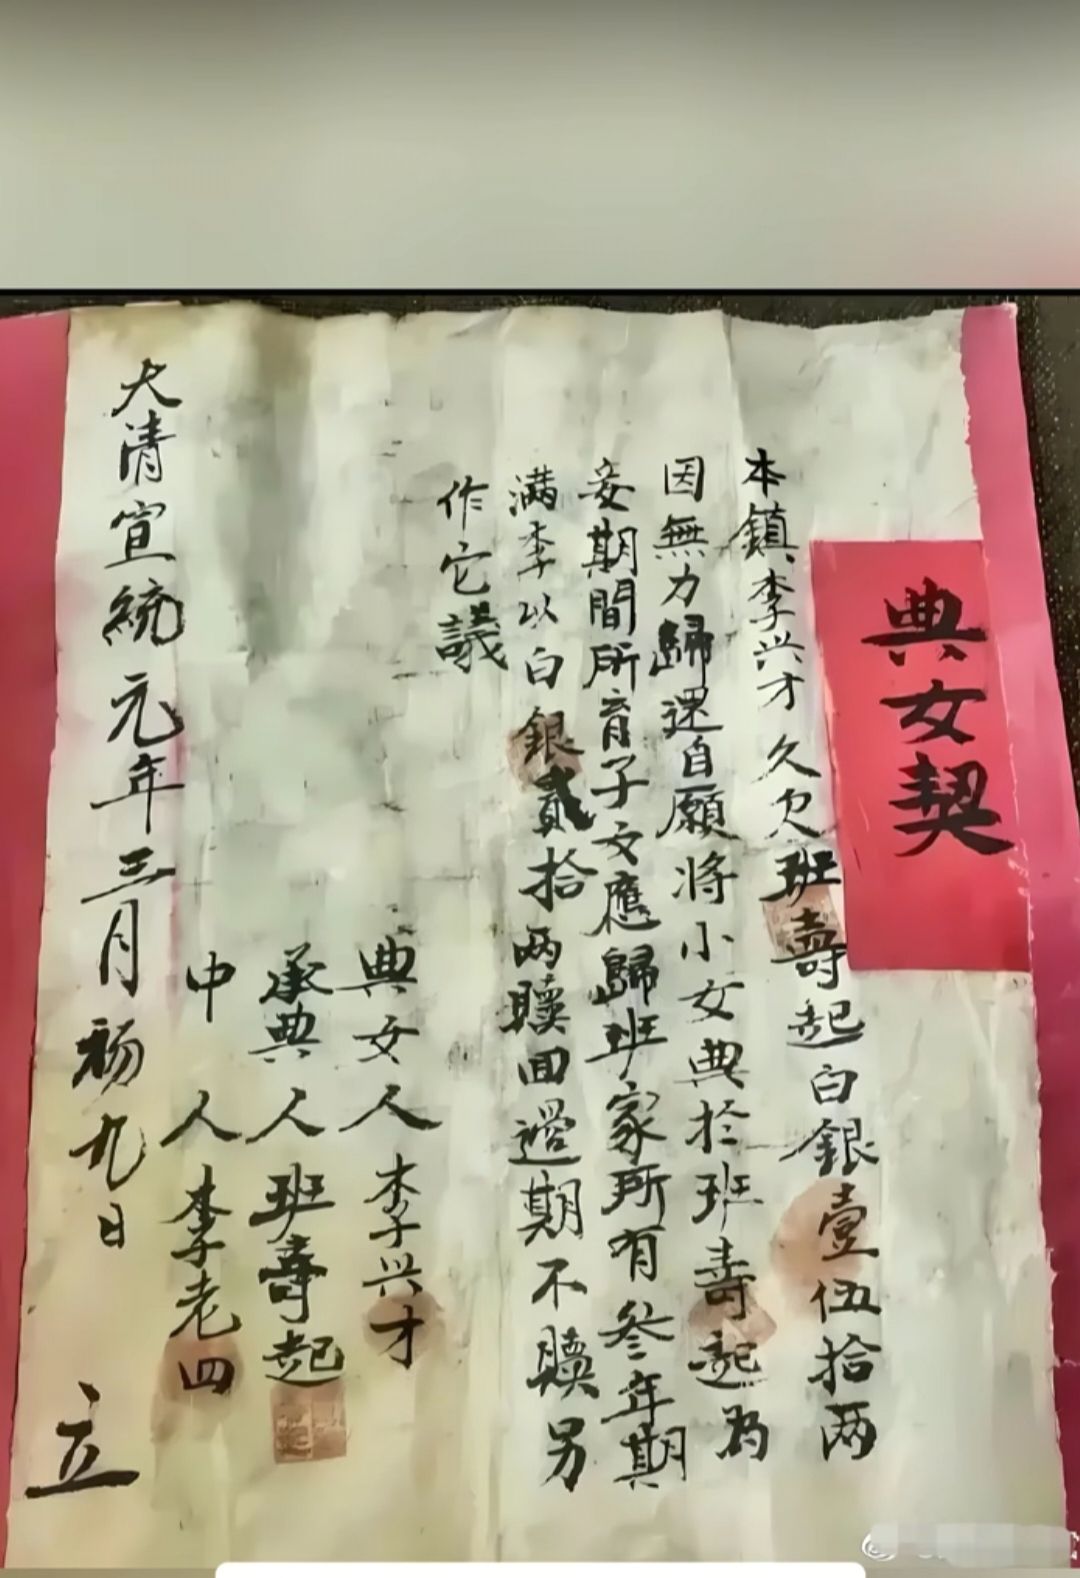 典女契
本鎮李兴才久欠班壽起白銀壹伍拾两
因無力歸還自願將小女典於班壽起為
妾期間所育子女應歸班家所有叁年期
满李以白銀貳拾两贖回過期不贖另
作它議
典女人李兴才
承典人班壽起
中人李老四
大清宣統元年三月初九日立